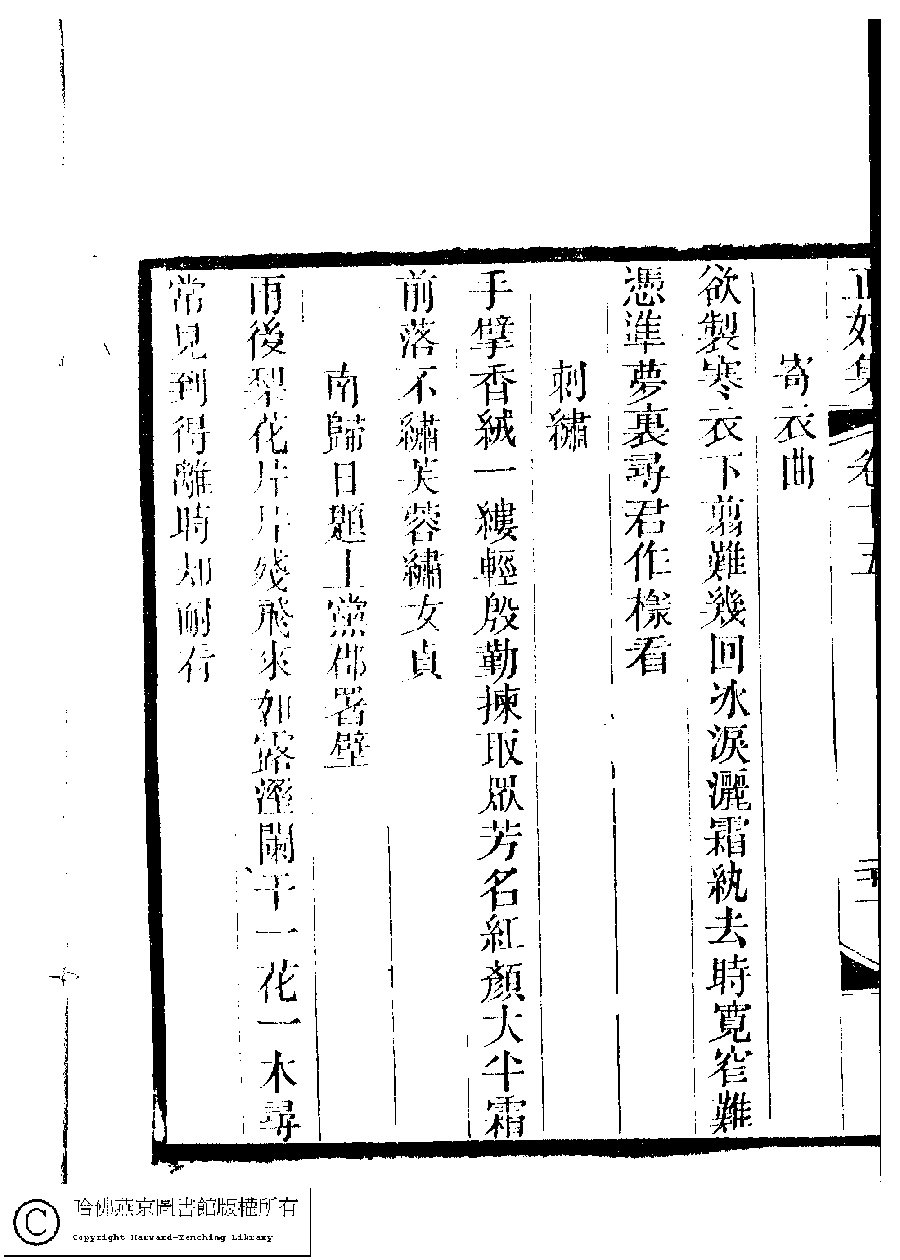 正始集 卷十五
寄衣曲
欲製寒衣下翦難幾回冰淚灑霜紈去時寬窄難
憑準夢裏尋君作樣看
刺繡
手擘香絨一縷輕殷勤揀取眾芳名紅顏大半霜
前落不繡芙蓉繡女貞
南歸日題上黨郡署壁
雨後梨花片片殘飛來如露溼闌干一花一木尋
常見到得離時却耐看
哈佛燕京圖書館版權所有
Copyright Harvard-Yenching Library